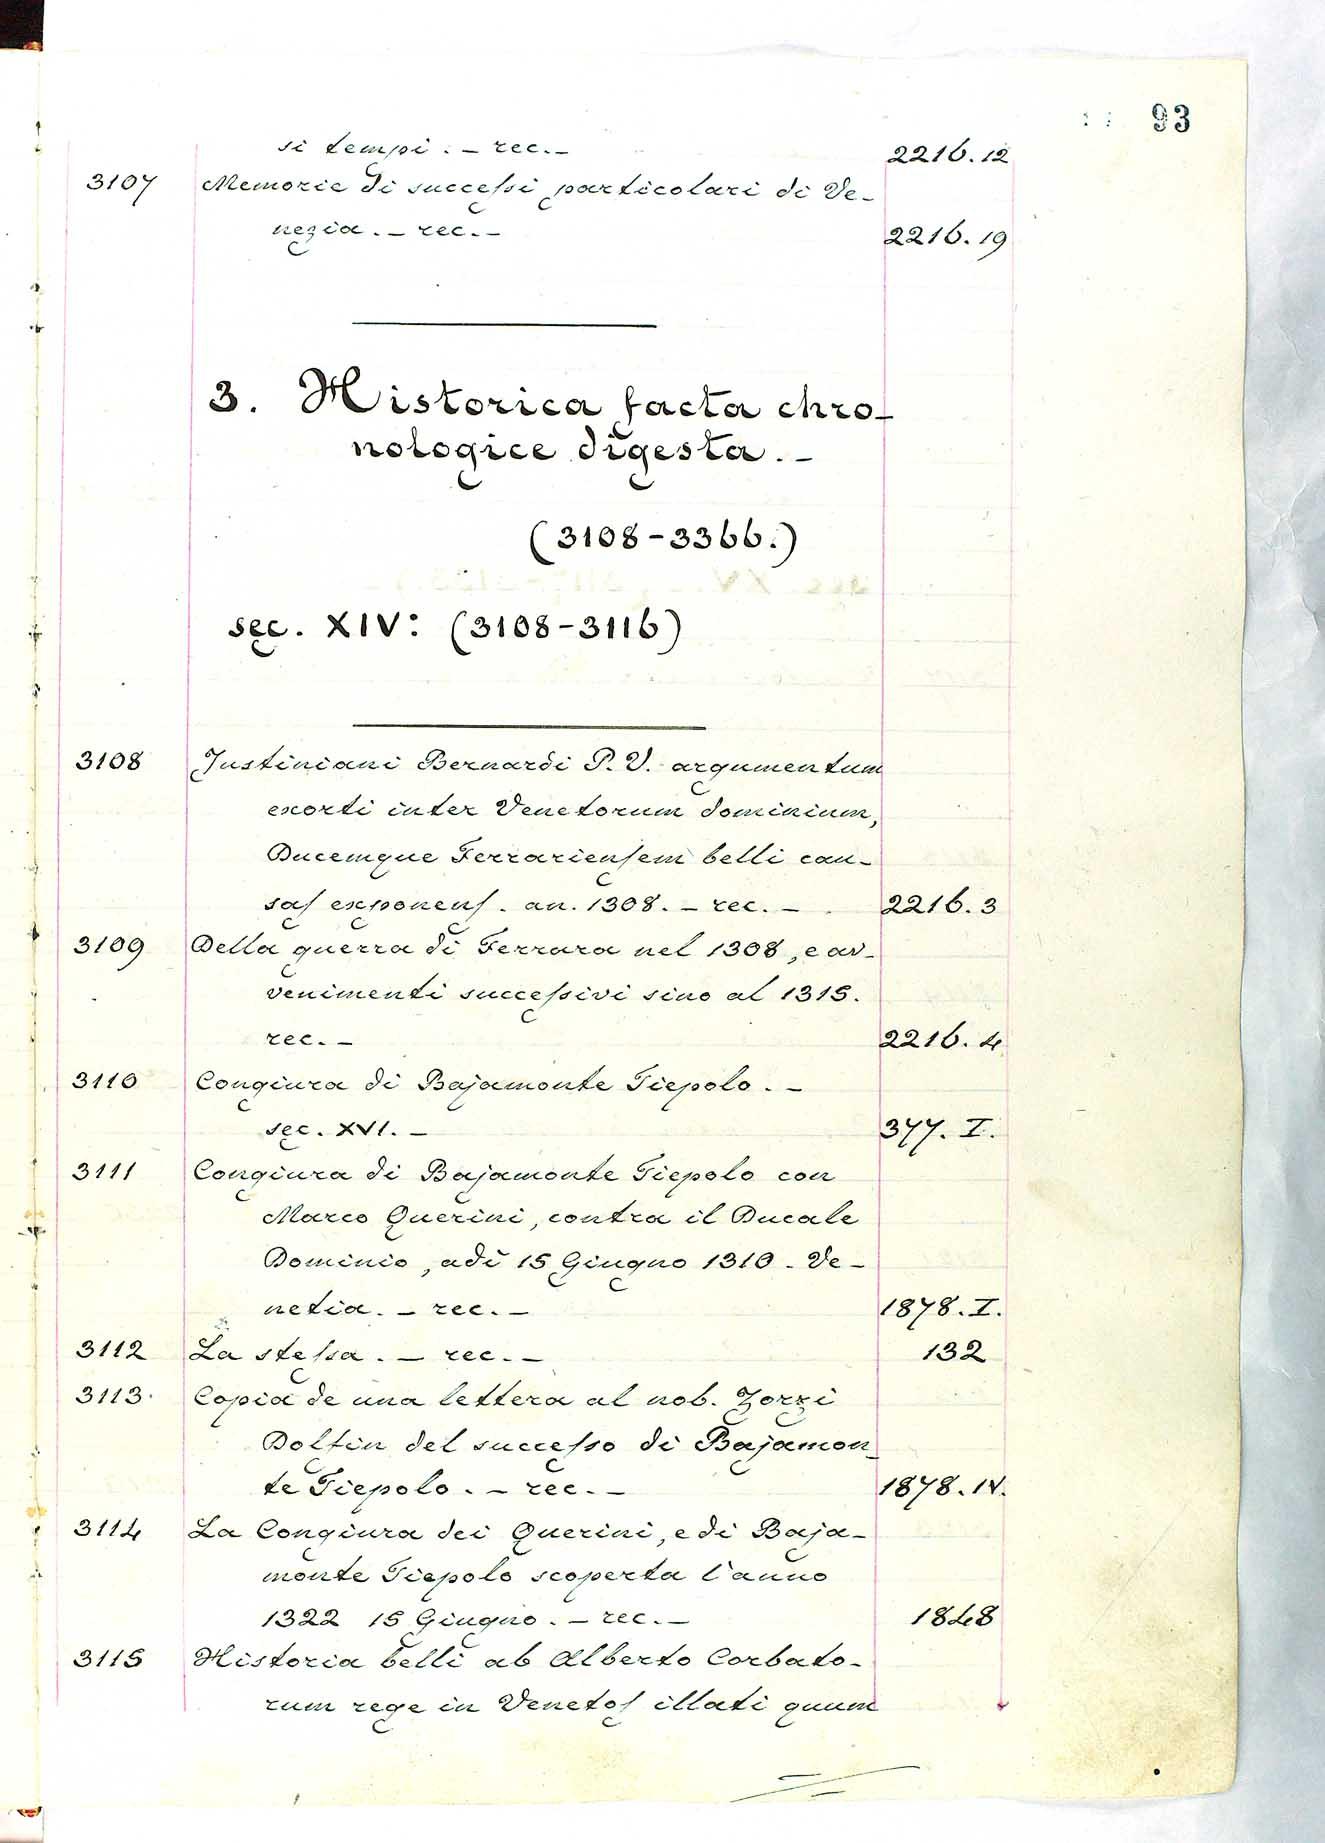 93
si tempi. – rec. –
2216. 12
3107 Memorie di successi particolari di Ve-
nezia. – rec. –
2216. 19
3. Historica facta chro-
nologice digesta. –
(3108-3366.)
sec. XIV: (3108-3116)
3108 Justiniani Bernardi P. V. argumentum
exorti inter Venetorum dominium,
Ducemque Ferrariensem belli cau-
sas exponens. an. 1308. – rec. – 2216. 3
3109 Della guerra di Ferrara nel 1308, e av-
venimenti successivi sino al 1315.
rec. – 2216. 4
3110 Congiura di Bajamonte Tiepolo. –
sec. XVI. – 377. I.
3111 Congiura di Bajamonte Tiepolo con
Marco Querini, contra il Ducale
Dominio, adì 15 Giugno 1310. Ve-
netia. – rec. – 1878. I.
3112 La stessa. – rec. – 132
3113 Copia de una lettera al nob. Zorzi
Dolfin del successo di Bajamon-
te Tiepolo. – rec. – 1878. IV.
3114 La Congiura dei Querini, e di Baja-
monte Tiepolo scoperta l'anno
1322 15 Giugno. – rec. – 1848
3115 Historia belli ab Alberto Corbato-
rum rege in Venetos illati quum